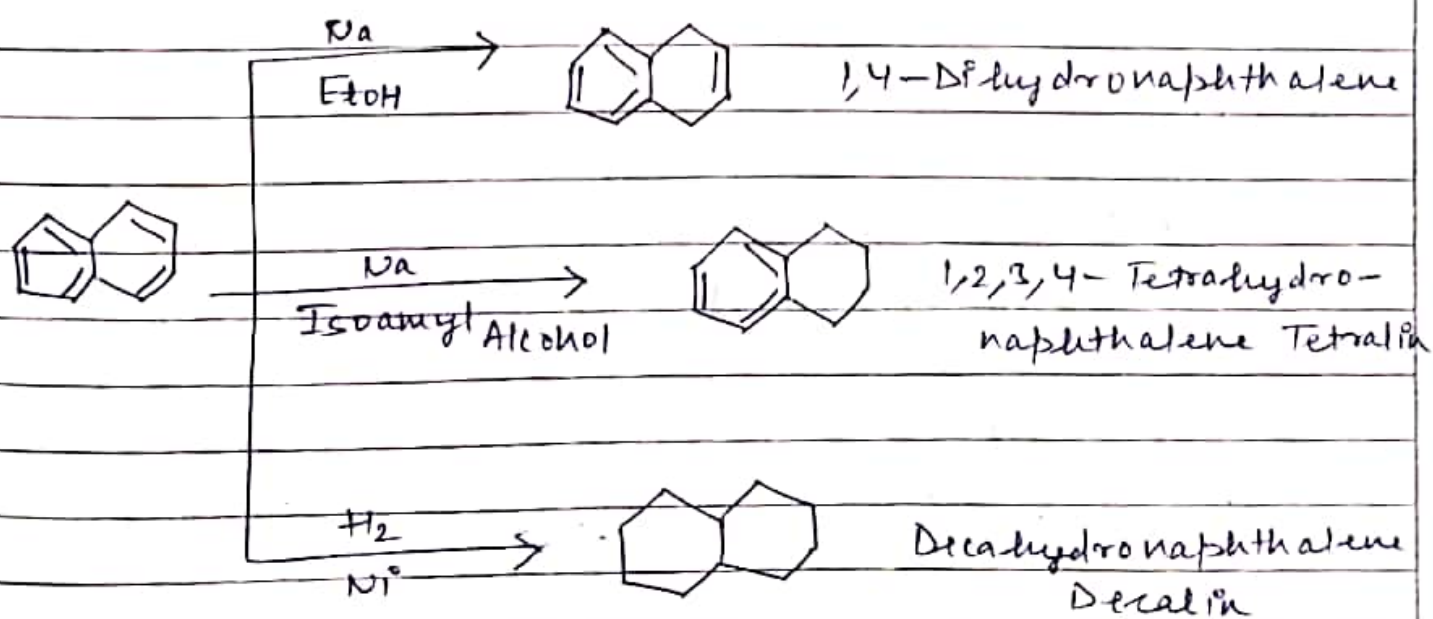 Na
EtOH
1,4-Dihydronaphthalene
Na
Isoamyl Alcohol
1,2,3,4- Tetrahydro-
naphthalene Tetralin
H2
Ni
Decahydronaphthalene
Decalin